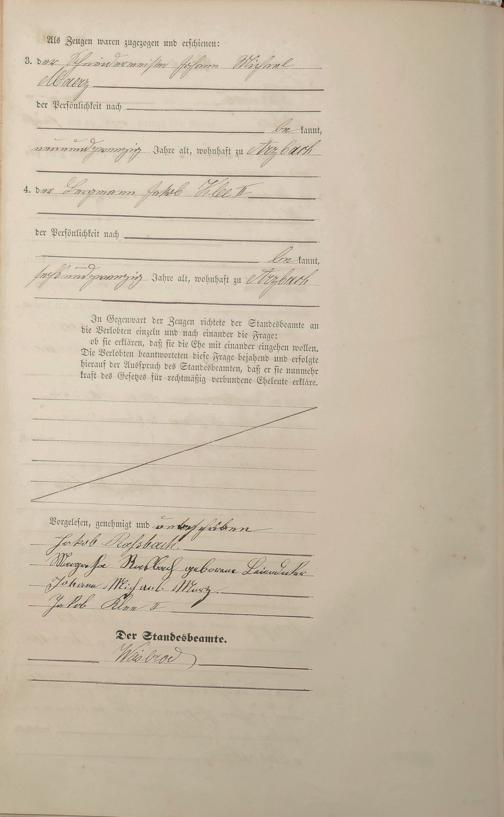 Als Zeugen waren zugezogen und erschienen:
3. der Schneidermeister Johann Michael
Maerz
der Persönlichkeit nach
be kannt,
neunundzwanzig Jahre alt, wohnhaft zu Arzbach
4. der Bergmann Jakob Klee II
der Persönlichkeit nach
be kannt,
sechsundzwanzig Jahre alt, wohnhaft zu Arzbach
In Gegenwart der Zeugen richtete der Standesbeamte an
die Verlobten einzeln und nach einander die Frage:
ob sie erklären, daß sie die Ehe mit einander eingehen wollen.
Die Verlobten beantworteten diese Frage bejahend und erfolgte
hierauf der Ausspruch des Standesbeamten, daß er sie nunmehr
kraft des Gesetzes für rechtmäßig verbundene Eheleute erkläre.
Vorgelesen, genehmigt und unterschrieben
Jakob Roßbach
geborene
Johann Michael Marz
Jakob Klee II
Der Standesbeamte.